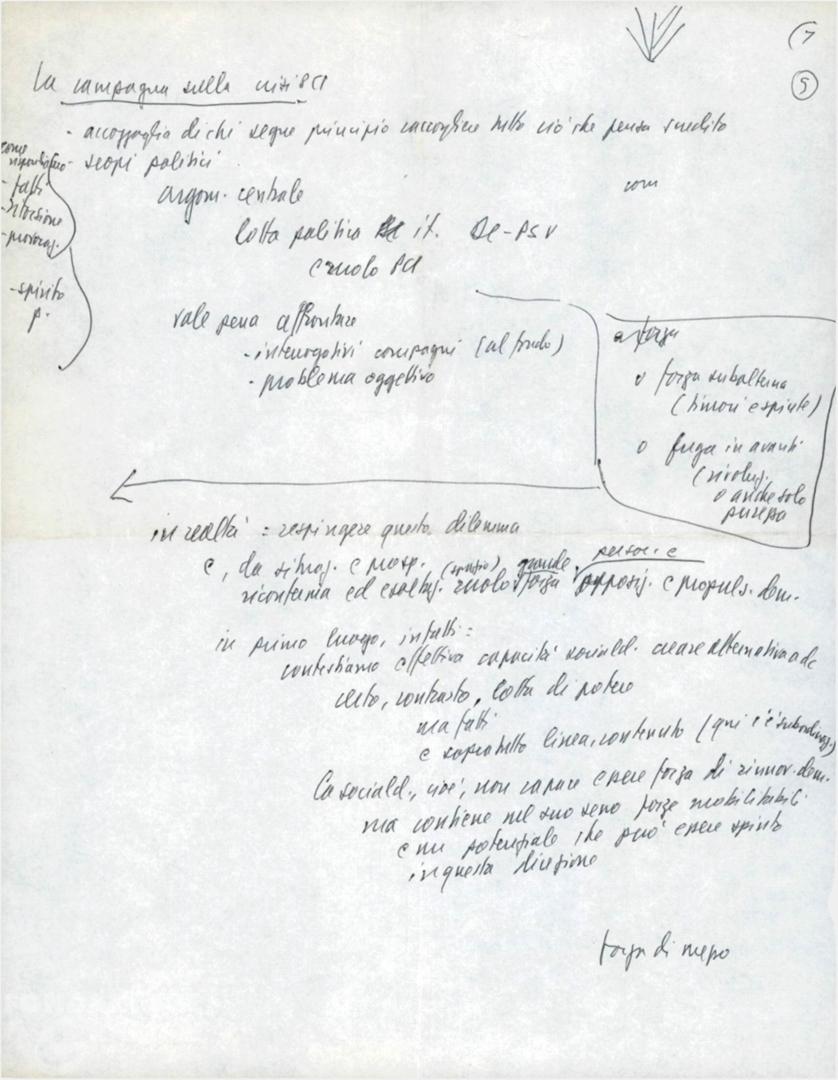 (7
5
La campagna sulla crisi PCI
- accozzaglia di chi segue principio raccogliere tutto ciò che pensa scredito
- scopi politici
come rispondiamo
- fatti
- ritorsione
- provocaz.
- spirito p.
argom. centrale
com
lotta politica it. DC-PSU
e ruolo PCI
vale pena affrontare
- interrogativi compagni (al fondo)
- problema oggettivo
a forza
o forza subalterna
(timori e spinte)
o fuga in avanti
(rivoluz.
o anche solo
purezza
in realtà: respingere questo dilemma
e, da situaz. e prosp. (spazio) grande, person. e
riconferma ed esaltaz. ruolo forza opposiz. e propuls. dem.
in primo luogo, infatti:
contestiamo effettiva capacità sociald. creare alternativa a dc
certo, contrasto, lotta di potere
ma fatti
e soprattutto linea, contenuto (qui c'è subordinaz.)
la sociald., cioè, non capace essere forza di rinnov. dem.
ma contiene nel suo seno forze mobilitabili
e un potenziale che può essere spinto
in questa direzione
forza di mezzo